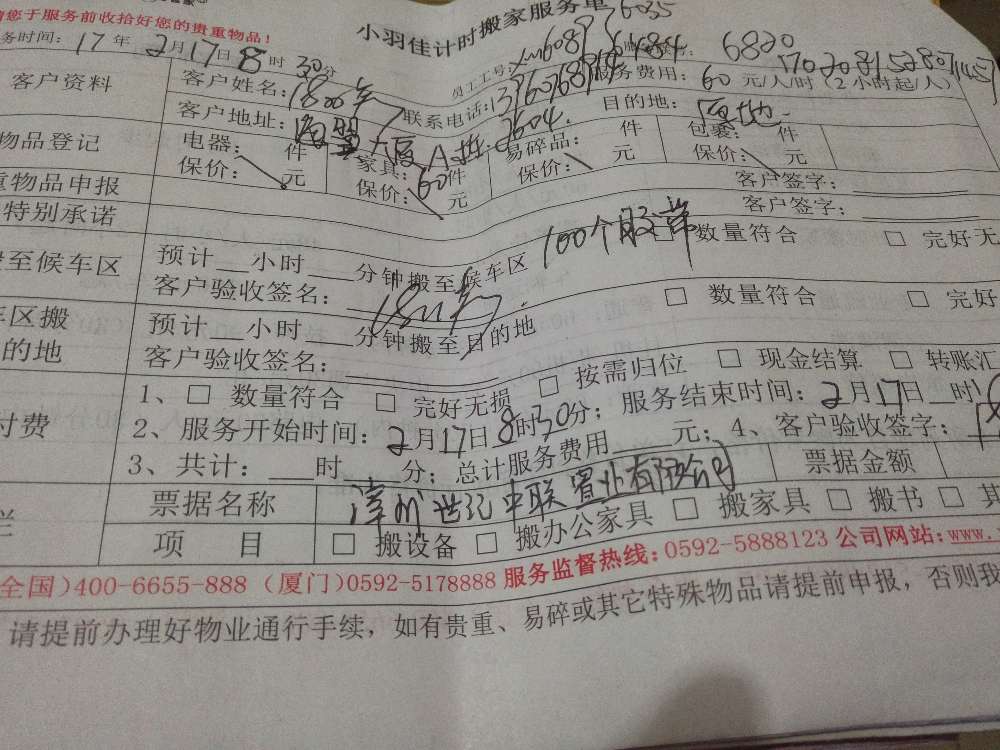 请您于服务前收拾好您的贵重物品!
小羽佳计时搬家服务单
务时间: 17年2月17日8时30分
员工工号:
客户资料
客户姓名:
联系电话:
服务费用: 60元/人/时 (2小时起/人)
客户地址: 大厦A栋2604.
目的地:
物品登记
电器: 件 家具: 60件 易碎品: 件 包裹: 件
保价: 元 保价: 元 保价: 元 保价: 元
重物品申报
客户签字:
特别承诺
客户签字:
100个胶带
至候车区
预计__小时__分钟搬至候车区
□ 数量符合 □ 完好无
客户验收签名:
车区搬
的地
预计__小时__分钟搬至目的地
□ 数量符合 □ 完好
客户验收签名:
付费
1、□ 数量符合 □ 完好无损 □ 按需归位 □ 现金结算 □ 转账汇
2、服务开始时间: 2月17日8时30分; 服务结束时间: 2月17日__时
3、共计: __时__分; 总计服务费用__元; 4、客户验收签字:
票据名称 漳州世纪中联置业有限公司 票据金额
项 目 □ 搬设备 □ 搬办公家具 □ 搬家具 □ 搬书 □ 其
全国)400-6655-888 (厦门)0592-5178888 服务监督热线: 0592-5888123 公司网站: www.
请提前办理好物业通行手续, 如有贵重、易碎或其它特殊物品请提前申报, 否则我